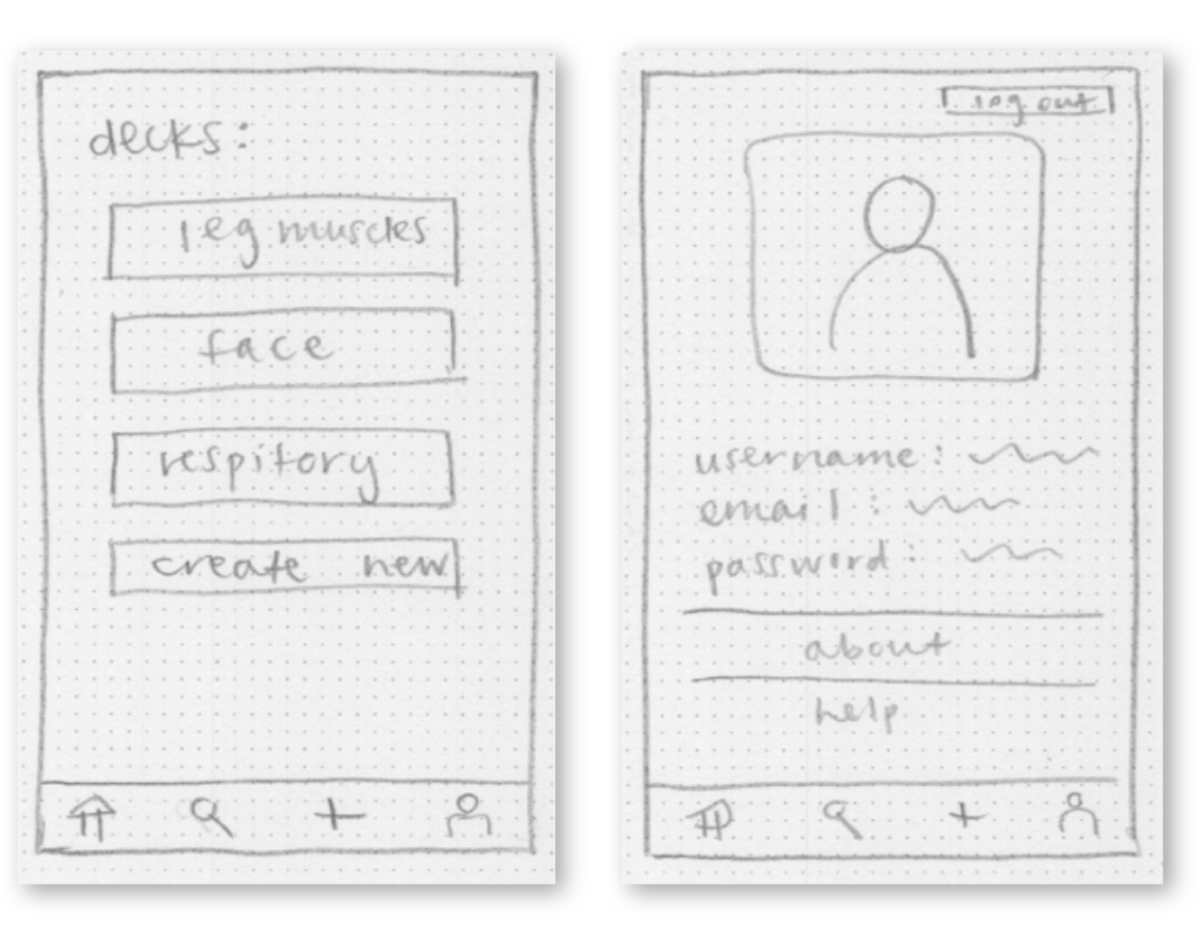 decks:
leg muscles
face
respitory
create new
log out
username:
email :
password:
about
help